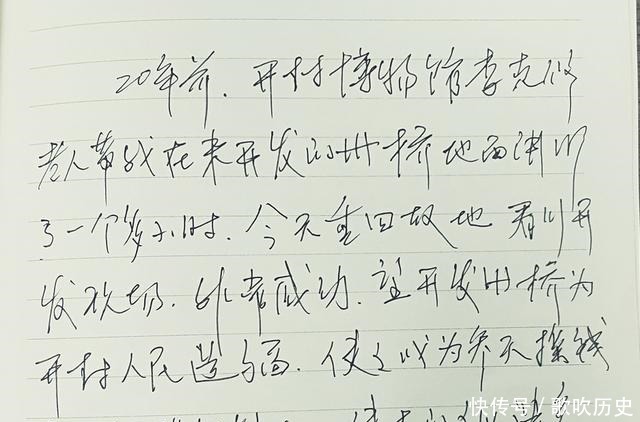 20年前，开封博物馆李克修
老人带我在未开发的州桥地面讲叫
了一个多小时，今天重回故地看到开
发现场，非常感动，望开发州桥为
开封人民造福，使之成为参天摇钱
快传号/歌吹历史